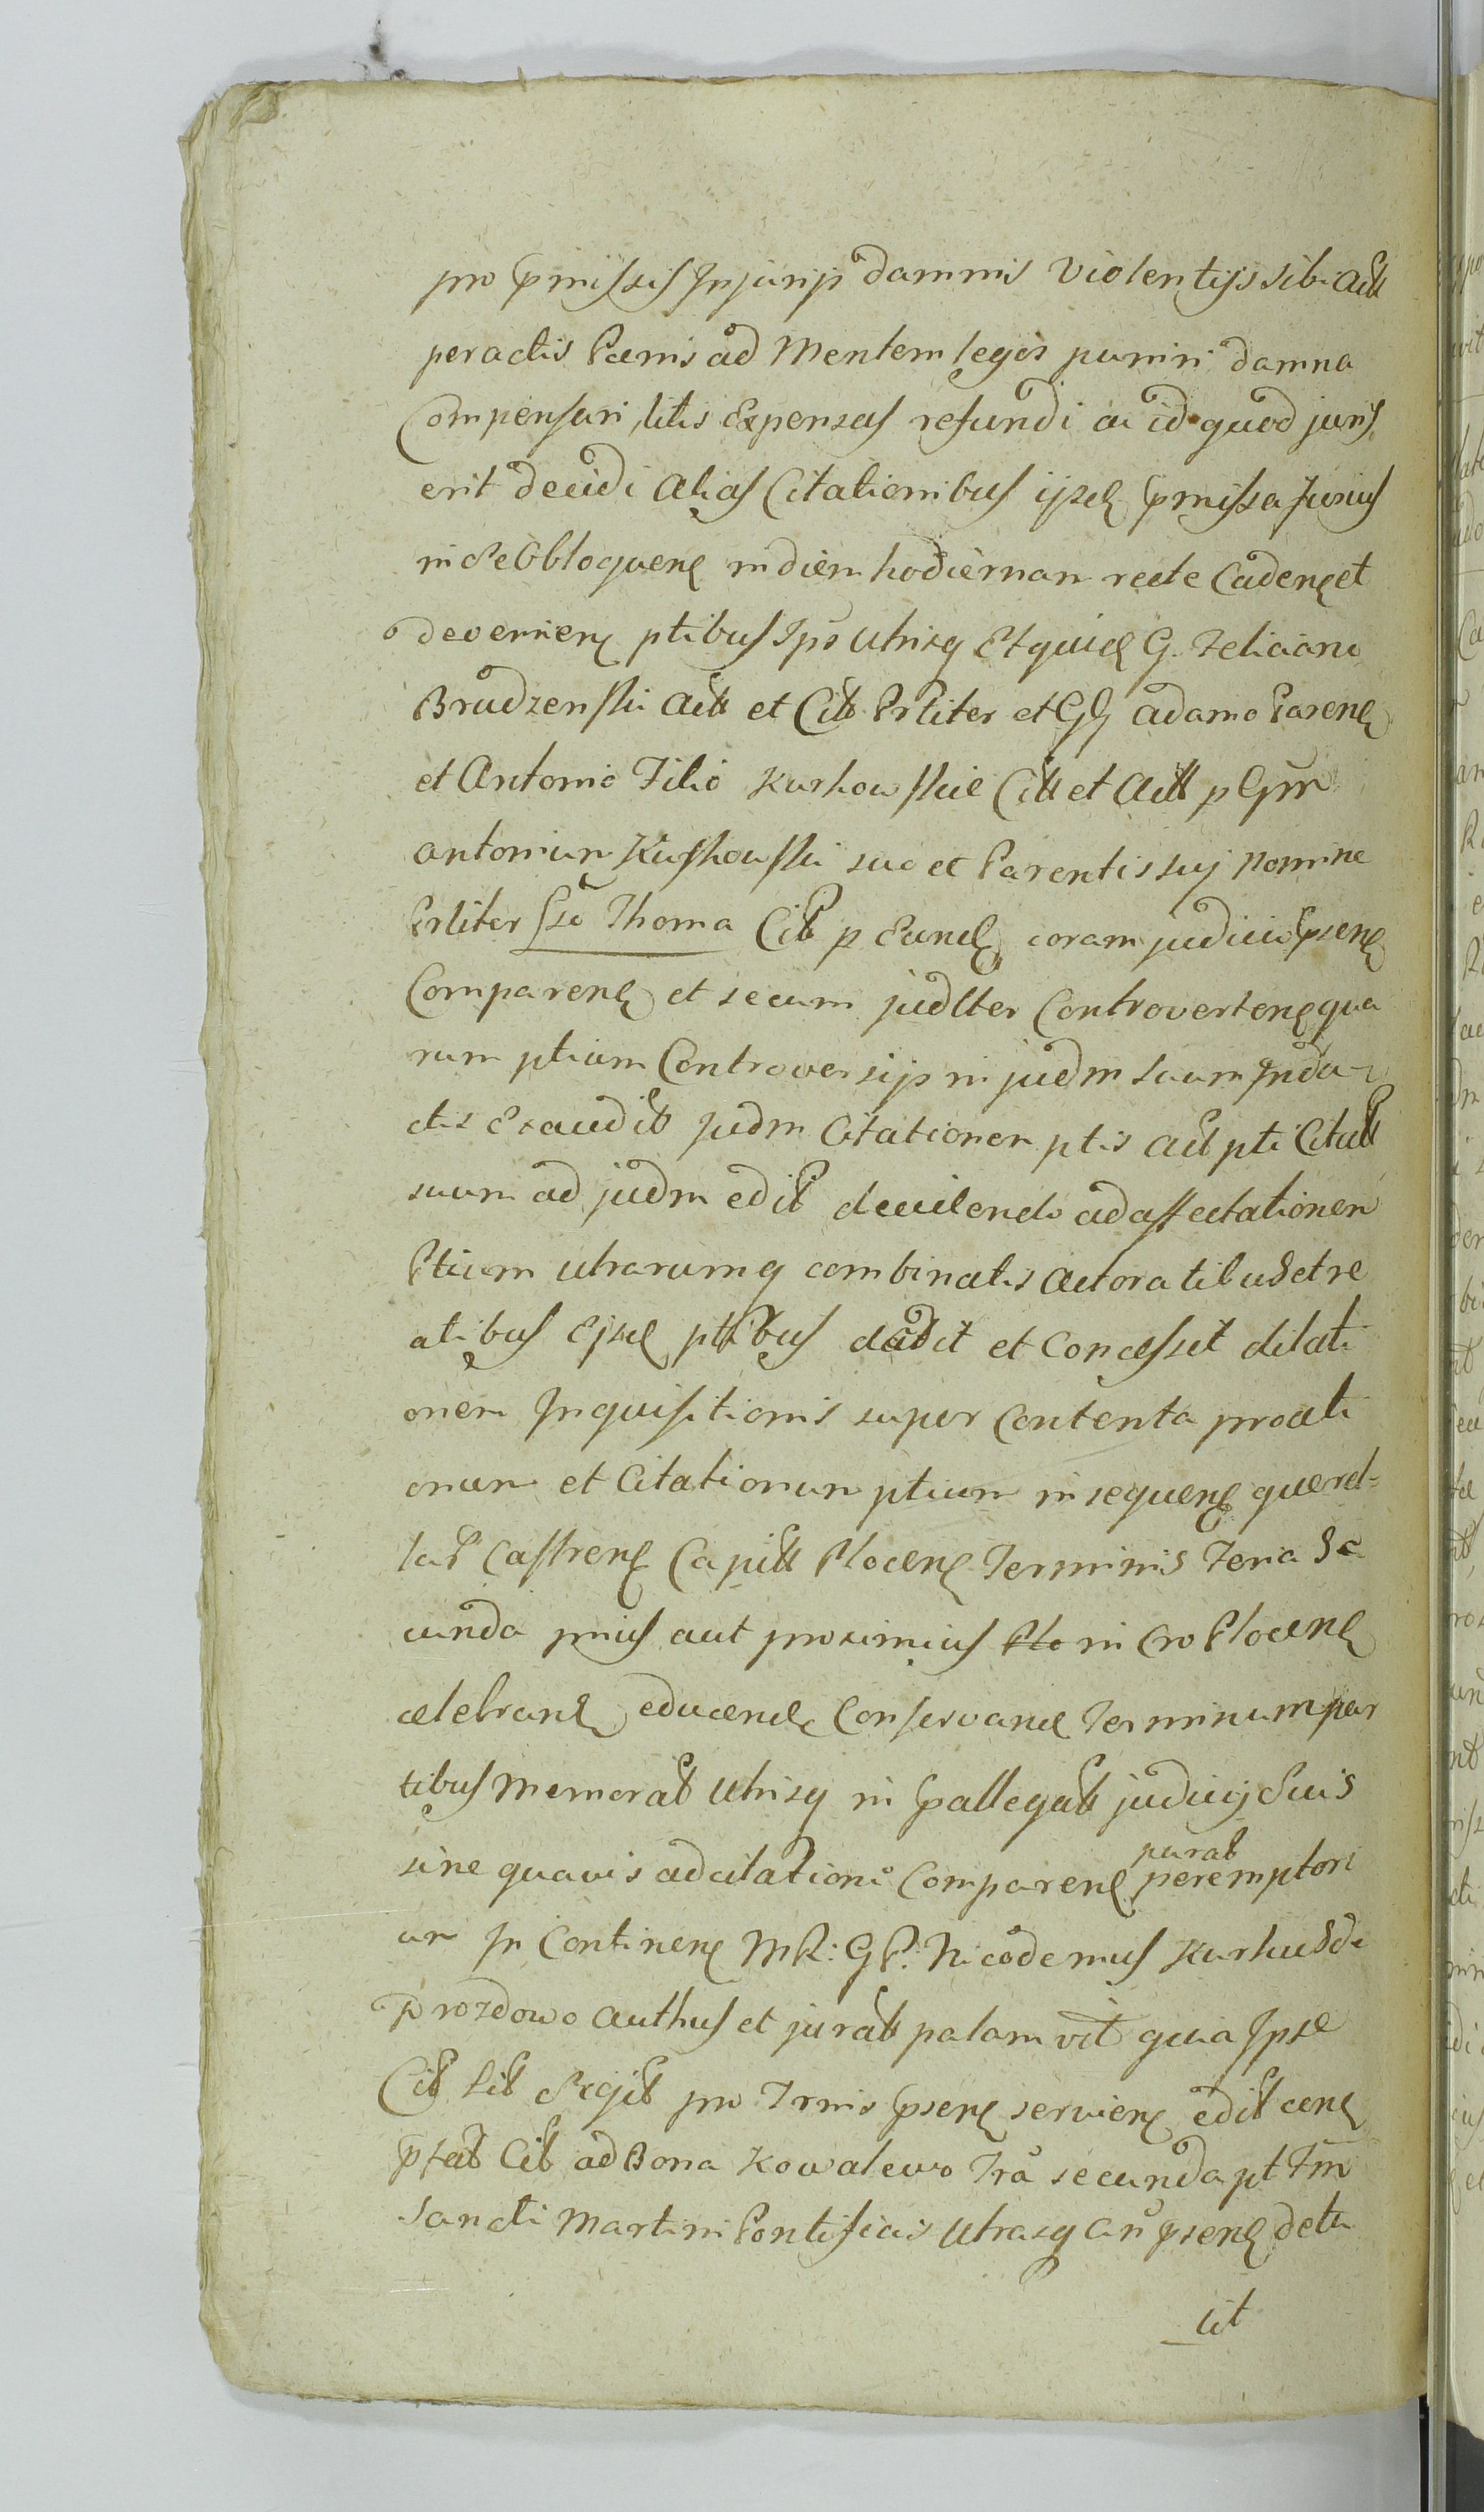 pro p̄missis Injurijs damnis Violentijs sibi Actt
peractis Pœnis ad Mentem legis puniri damna
Compensari, litis Expensas refundi ac id quod juris
erit decidi Alias Citationibus ijsd p̄missa fusius
in se Obloquen in diem hodiernam recte Caden et
devenien ptibus Ips Utrisq Et quid G. Feliciano
Brudzenski Actt et Citt Prliter et GG Adamo Paren
et Antonio Filio Kurkowskie Citt et Actt p Gm
Antonium Kurkowski suo et Parentis sui Nomine
Prliter Thoma Citt p Eund coram judicio p̄sen
Comparen et secum judlter Controverten qua
rum ptium Controversijs in judm suum Inda
ctis Exauditt judm Citationem ptis Actt pti Citatt
suum ad judm editt decidendo ad affectationem
Ptium utrarumq combinatis Actoratibus et re
atibus Ejsd ptibus dedit et Concessit dilati
onem Inquisitionis super Contenta proati
onum et Citationum ptium in sequen querel-
lar Castren Capitt Plocen Terminis Feria Se
cunda prius aut proximius Plo in Cro Plocen
celebran educend Conservand Terminum par
tibus Memoratt Utrisq in p̄allegatt judicij Suis
sine quavis adcitatione Comparen peremptori
paratt
um In Continen MR: GP: Nicodemus Kurhus de
Drozdowo Authus et juratt palam vit quia Ipse
Citt Litt Regit pro Trnis p̄sen servien editt cen
p̄fatt Citt ad Bona Kowalewo Fra secunda pt Fm
Sancti Martini Pontificis Utrasq An p̄sen detu
lit